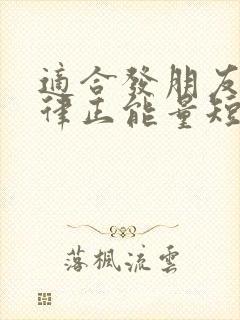 適合發朋友
律正能量短
落楓流雲